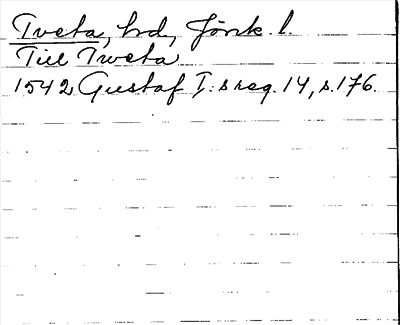 Tveta, hd, Jönk. l.
Till Tweta
1542 Gustaf I:s reg. 14, s. 176.